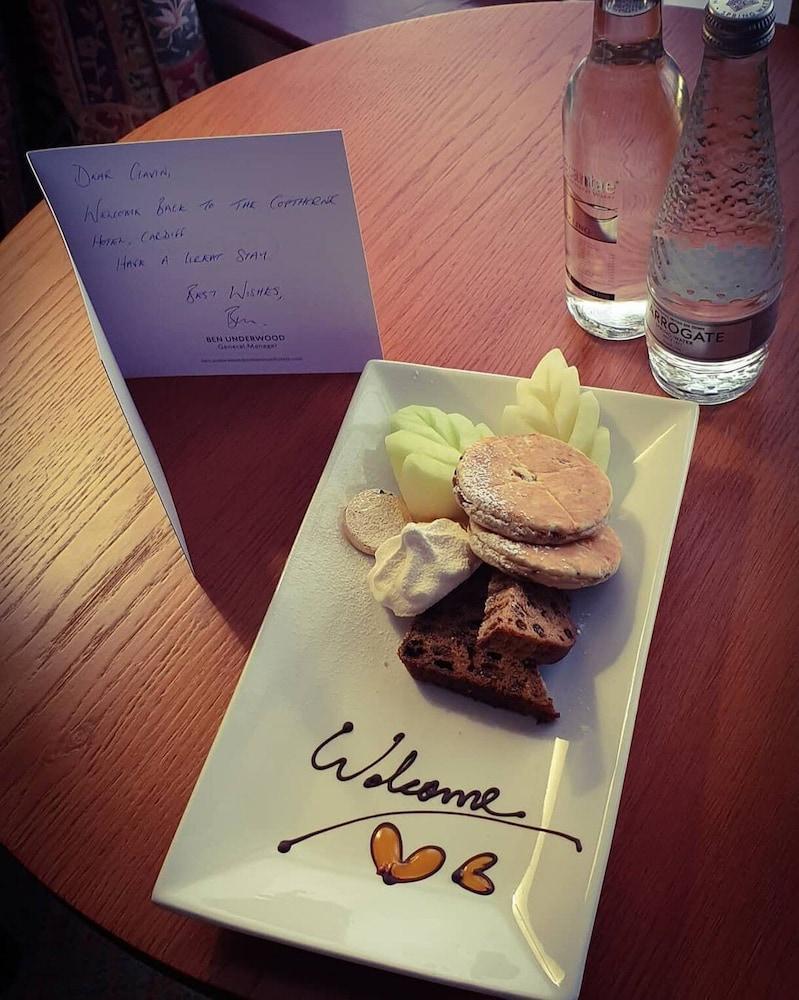 DEAR GAVIN,
WELCOME BACK TO THE COPTHORNE
HOTEL, CARDIFF
HAVE A GREAT STAY.
BEST WISHES,
Ben.
BEN UNDERWOOD
General Manager
ARROGATE
Welcome